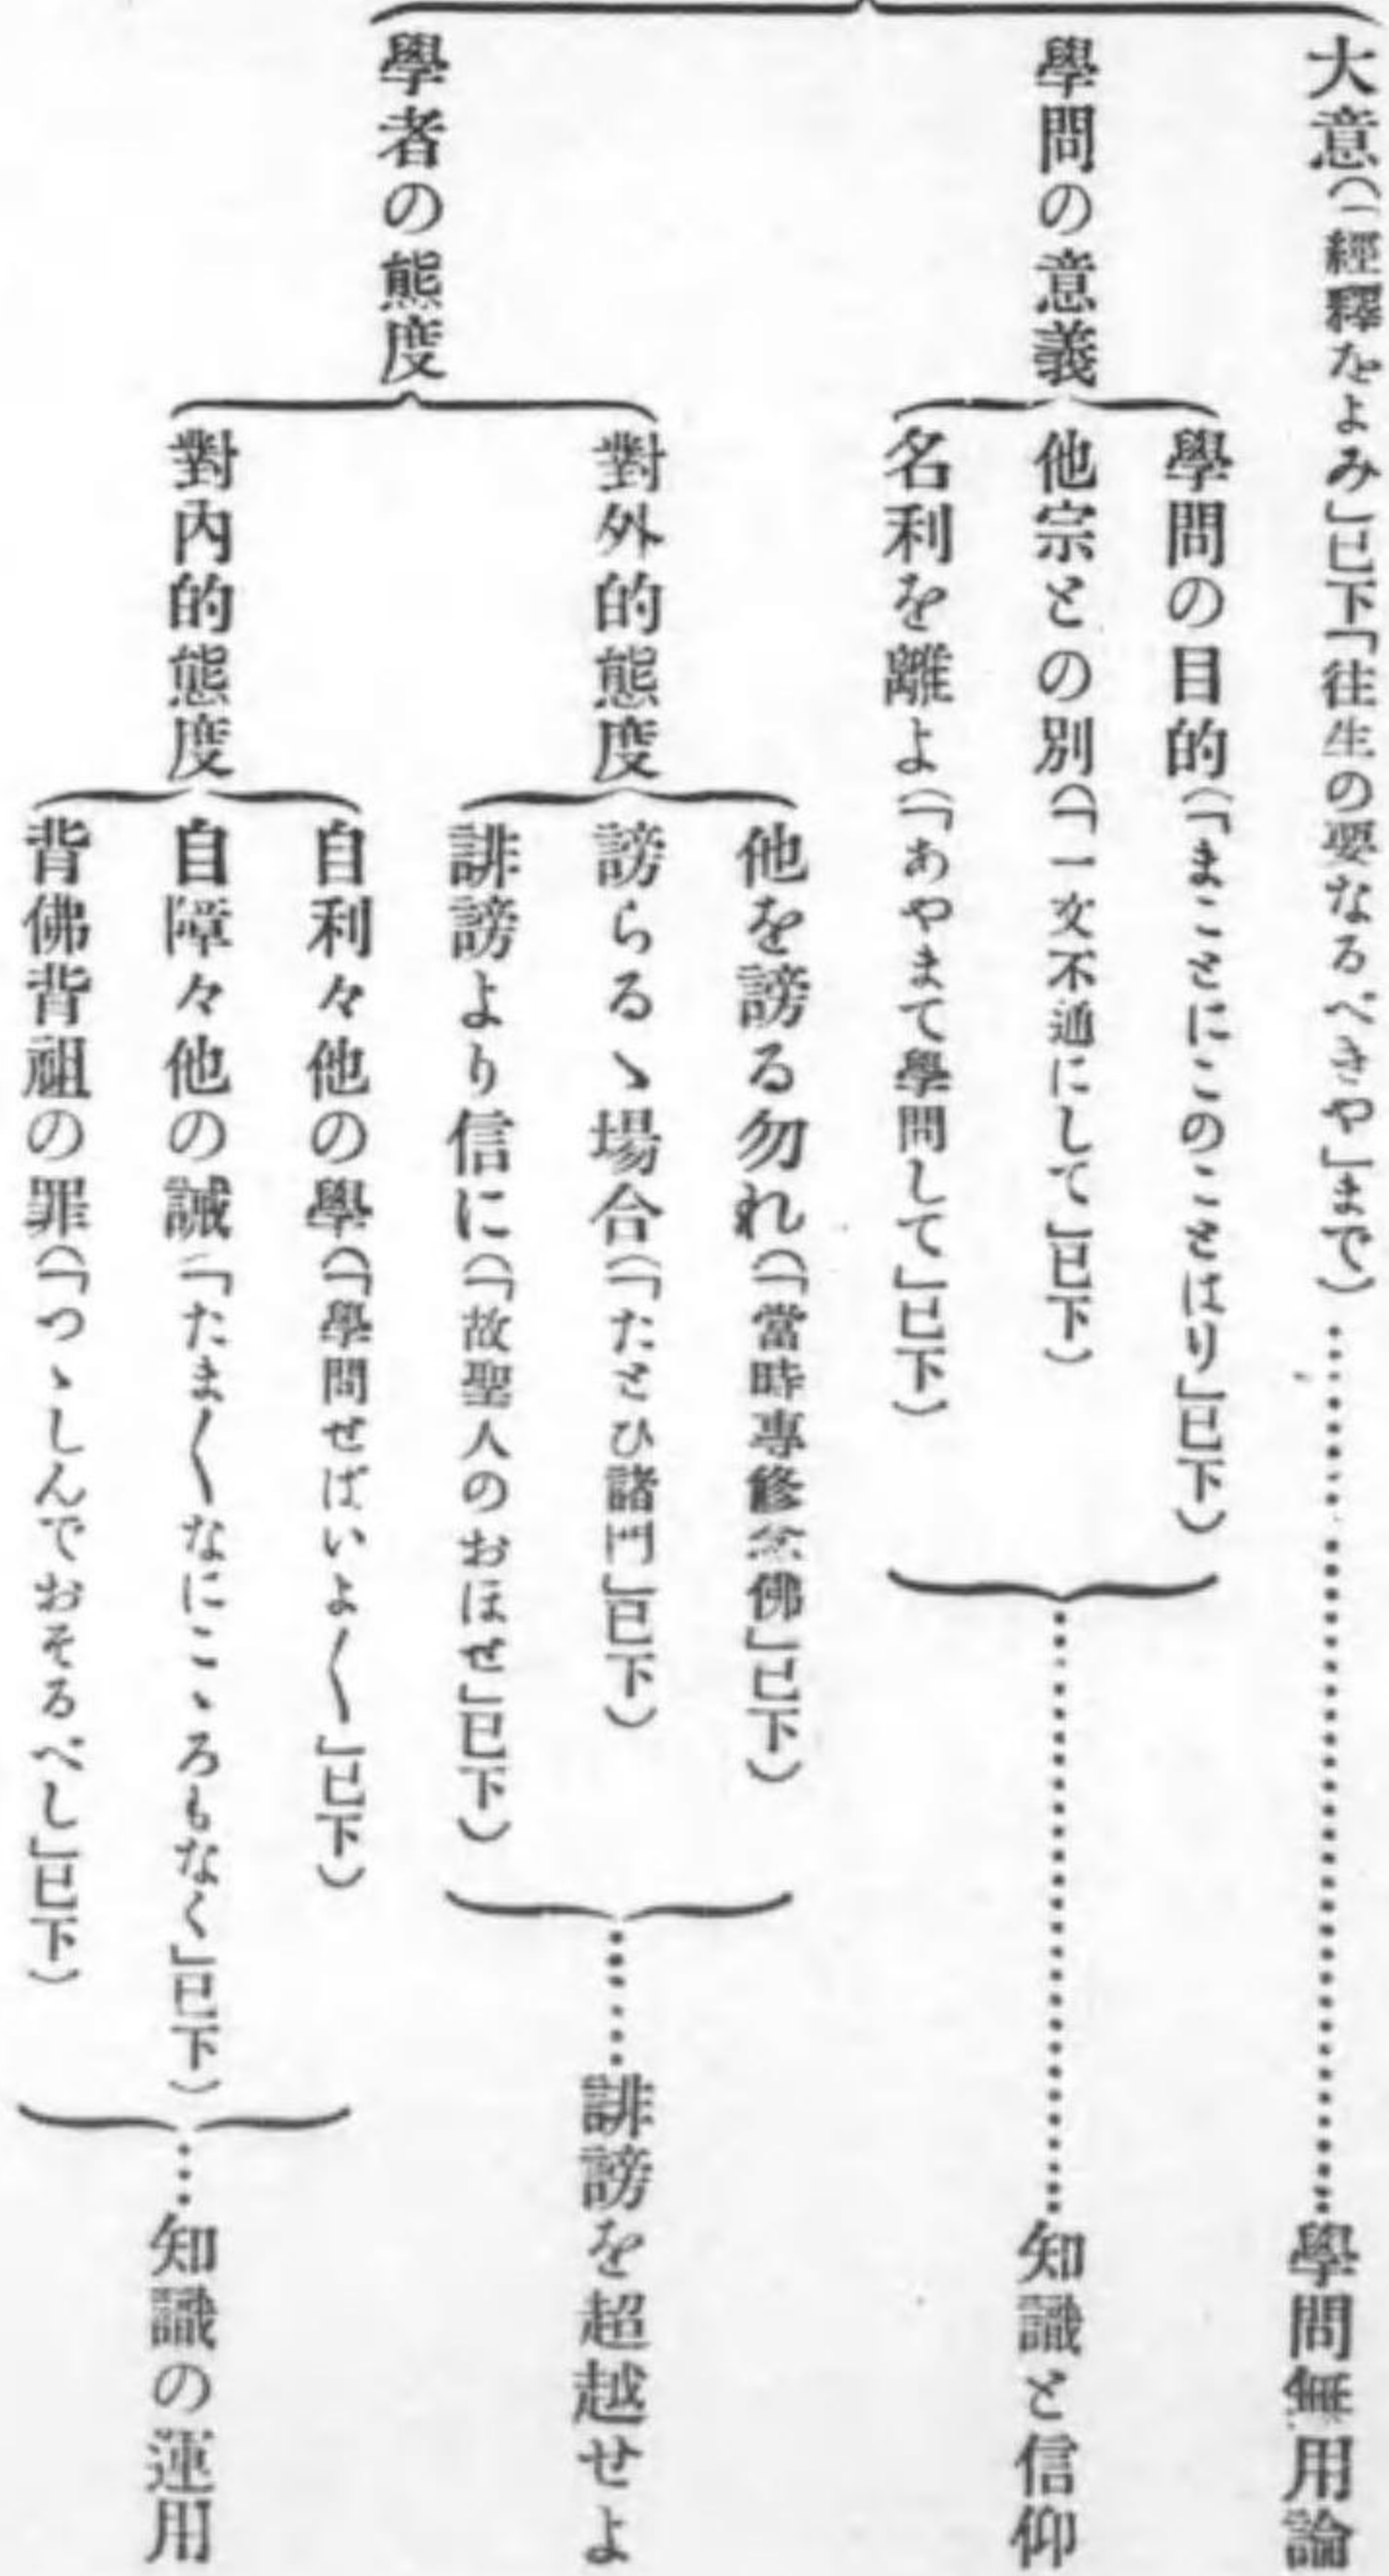 大意(「經釋をよみ」已下「往生の要なるべきや」まで)……學問無用論
學問の意義
學問の目的(「まことにこのことはり」已下)
他宗との別(「一文不通にして」已下)
名利を離よ(「あやまて學問して」已下)
……知識と信仰
學者の態度
對外的態度
他を謗る勿れ(「當時專修念佛」已下)
謗らるゝ場合(「たとひ諸門」已下)
誹謗より信に(「故聖人のおほせ」已下)
……誹謗を超越せよ
對內的態度
自利々他の學(「學問せばいよ〱」已下)
自障々他の誡「たま〱なにこゝろもなく」已下)
背佛背祖の罪(「つゝしんでおそるべし」已下)
…知識の運用